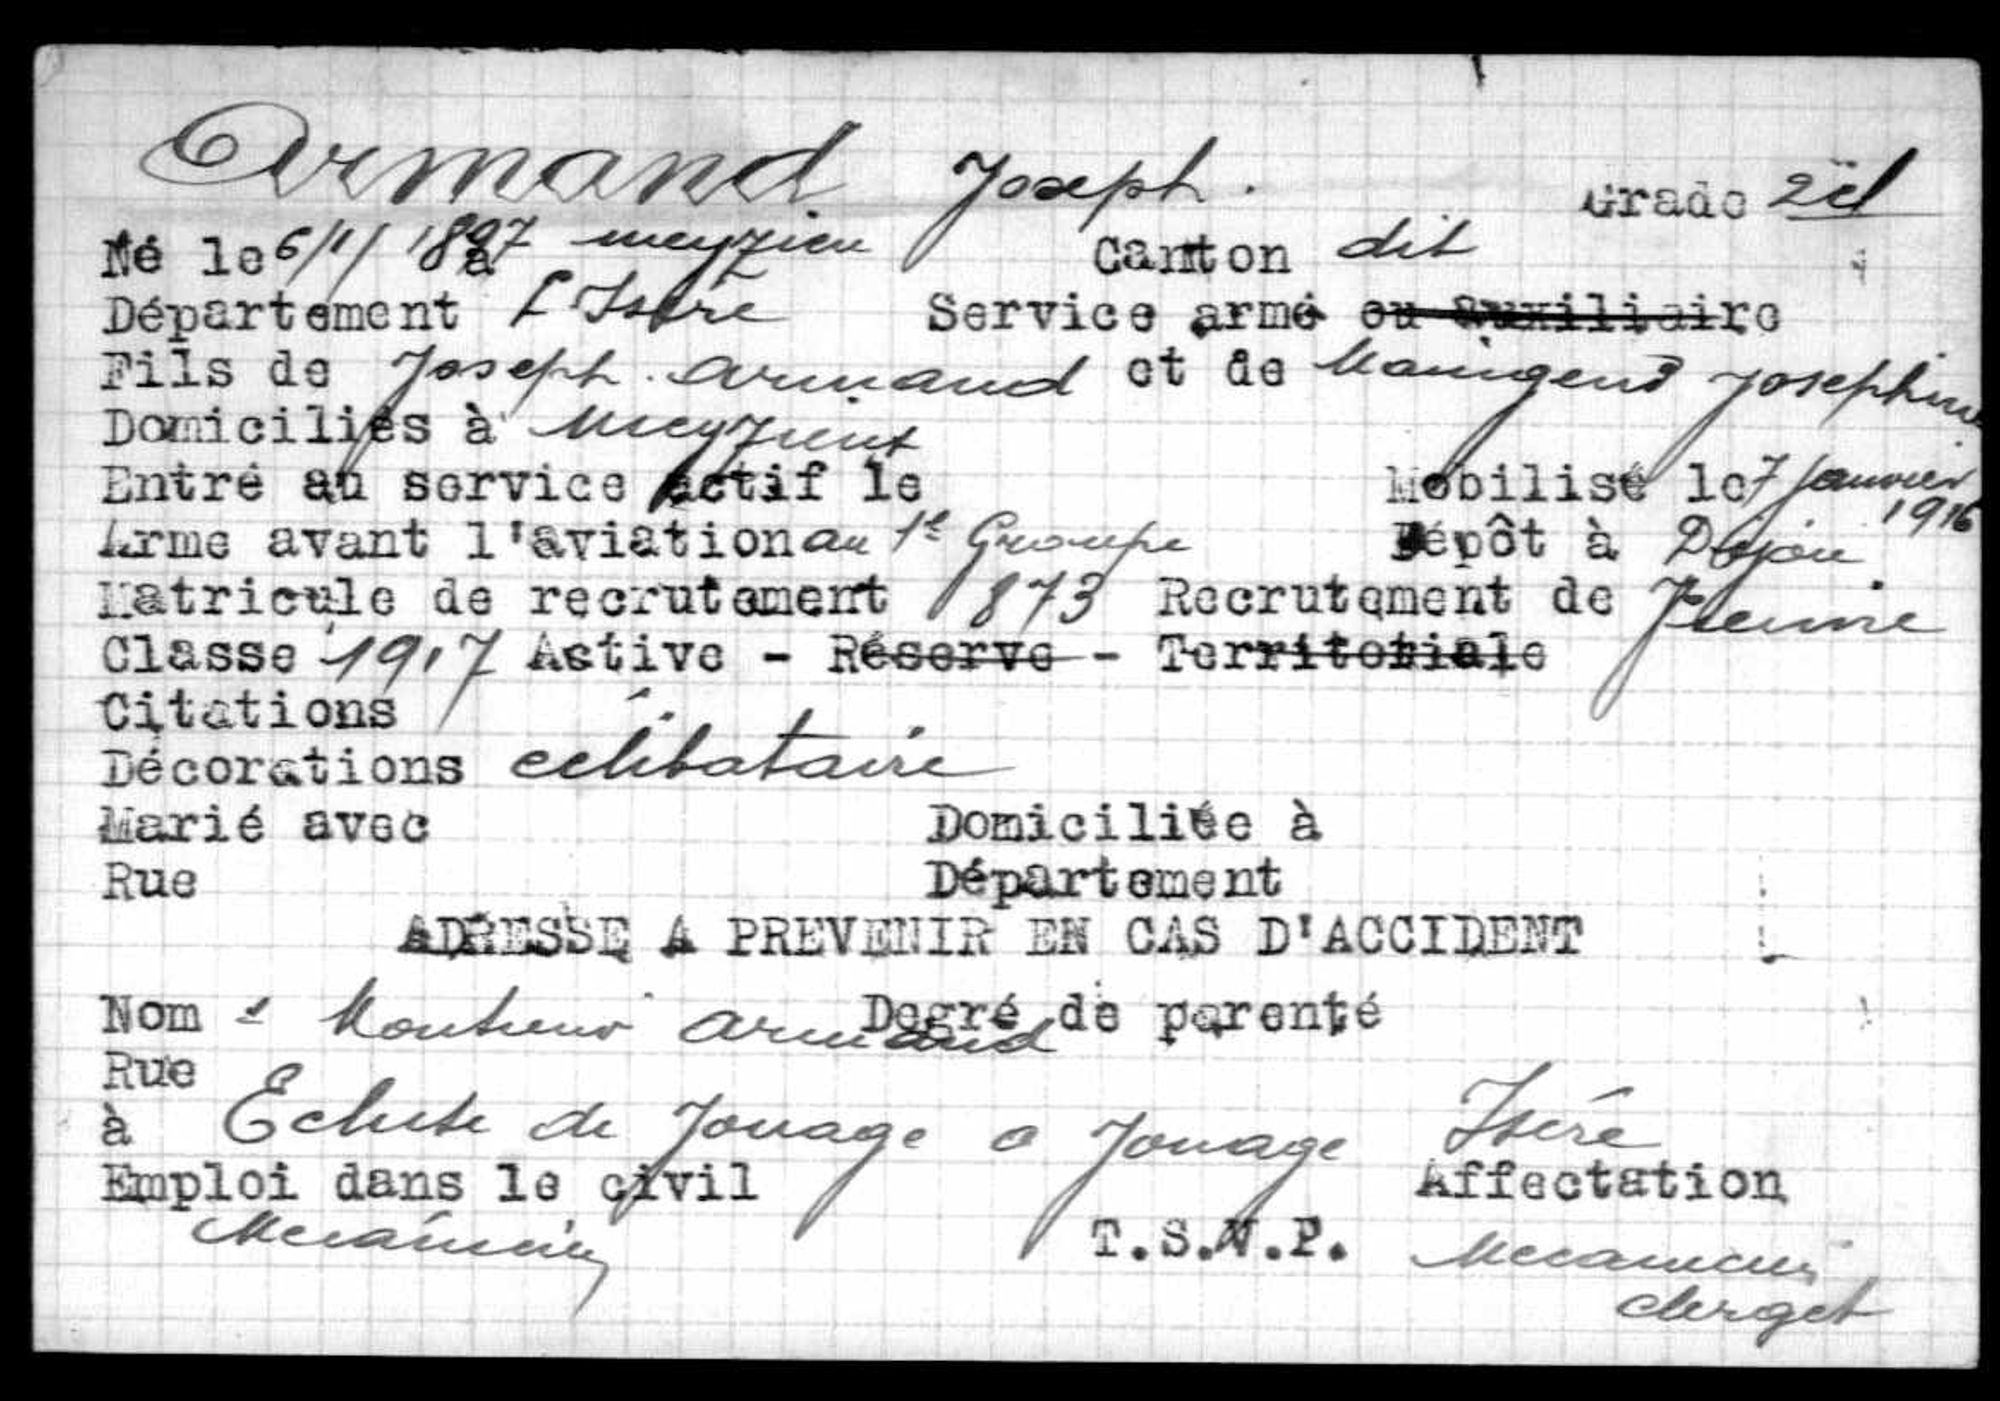 Armand Joseph. Grade 2e cl
Né le 6/1/1897 à meyzieu Canton dit
Département L'Isère Service armé ou auxiliaire
Fils de Joseph. Armand et de Josephine
Domiciliés à Meyzieux
Entré au service actif le Mobilisé le 7 Janvier 1916
Arme avant l'aviation au 1e Groupe Dépôt à Dijon
Matricule de recrutement 873 Recrutement de Vienne
Classe 1917 Active - Réserve - Territoriale
Citations
Décorations celibataire
Marié avec Domiciliée à
Rue Département
ADRESSE A PREVENIR EN CAS D'ACCIDENT
Nom Monsieur Armand Degré de parenté
Rue
à Ecluse de Jonage a Jonage Isére
Emploi dans le civil Affectation
Mecanicien T.S.V.P. Mecanicien
clerget